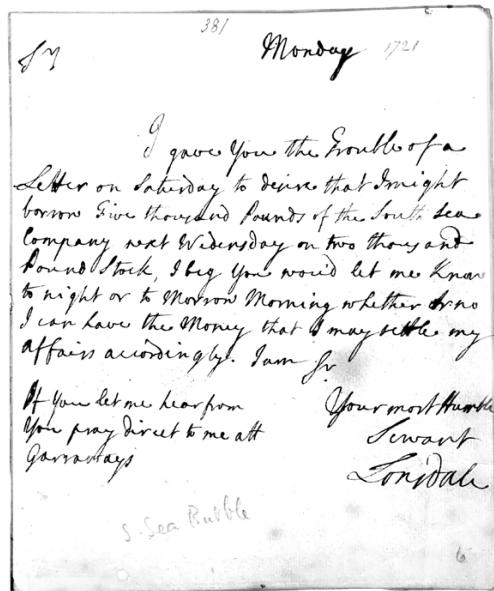 381
Monday 1721
Sr
I gave You the Trouble of a
Letter on Saturday to desire that I might
borrow Five thousand Pounds of the South Sea
Company next Wedensday on two thousand
Pound Stock, I beg You wou'd let me Know
to night or to Morrow Morning whether Or no
I can have the Money that I may settle my
affairs accordingly. I am Sr
Your most Humble
Servant
Lonsdale
If You let me hear from
You pray direct to me att
Garraways
S. Sea Bubble
6